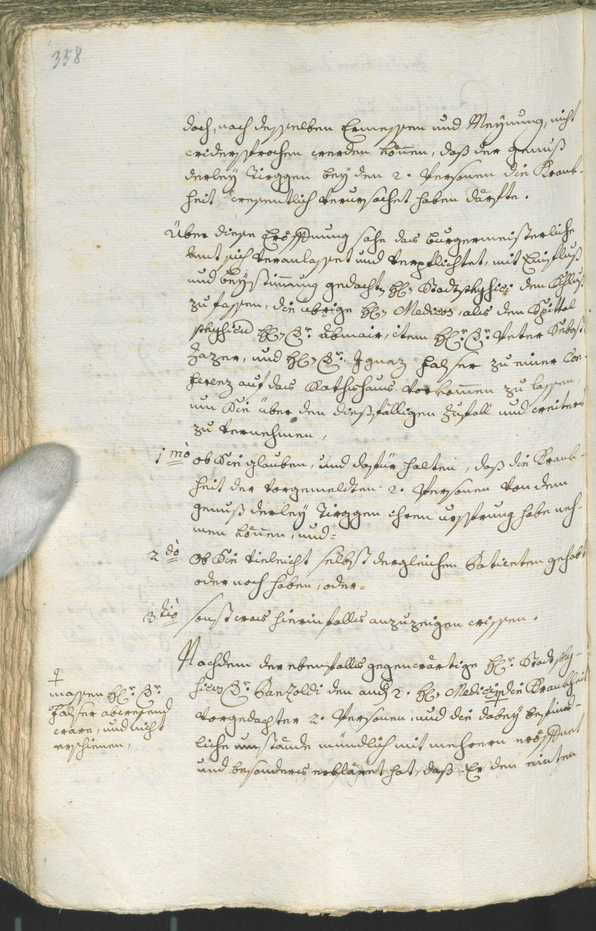 358
doch, nach desselben Ermessen und Meÿnung, nicht
widersprochen werden können, daß der genuß
derleÿ Türggen beÿ den 2. Personen die Krank-
heit wesentlich verursachet haben därfte.
Über diese Eröffnung sahe das burgermeisterliche
Amt sich veranlasset und verpflichtet, mit Einfluß
und beÿstimmung gedacht Hl. Stadtphysici den Schluß
zu fassen, die übrige Hl. Medicos, als den Spittal
physicum Hl. Dr. Abmair, item Hl. Dr. Peter
und Hl. Dr. Ignaz Falser zu einer Con-
ferenz auf das Rathshaus vorkommen zu lassen,
um Sie über den dießfälligen Zufall und weiters
zu vernehmen,
1mo ob Sie glauben, und dafür halten, daß die Krank-
heit der vorgemeldten 2. Personen von dem
genuß derleÿ Türggen ihren ursprung habe neh-
men können, und
2do ob Sie vieleicht selbst dergleichen Patienten gehabt
oder noch haben, oder
3tio sonst was hierinfalls anzuzeigen wissen.
Nachdem der ebenfalls gegenwärtige Hl. Stadtphy-
sicus Dr. den andern 2. Hl. Medicis die Krankheit
vorgedachter 2. Personen, und die dabeÿ befind-
liche umstände mündlich mit mehrern eröffnet
und besonders erkläret hat, daß Er den einten
massen Hl. Dr.
Falser abwesend
ware, und nicht
erschienen,